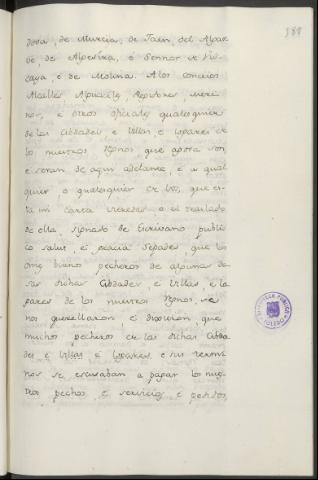 389
dova, de Murcia, de Jaen, del Algar
ve, de Algecira, é Sennor de Viz
caya, é de Molina. A los concejos
Alcalles Alguaciles, Regidores, Meri
nos, é otros oficiales qualesquier
de las Cibdades, é Villas, é Logares de
los nuestros Regnos que agora son
é seran de aqui adelante, é a qual
quier o qualesquier de vos, que es
ta mi carta vieredes, o el traslado
de ella, signado de Escribano publi
co salut, é gracia Sepades, que los
oms buenos pecheros de algunas de
sas dichas Cibdades, é Villas, é Lo
gares de los nuestros Regnos, se
nos querellaron, é dixeron, que
muchos pecheros de las dichas Cibda
des é Villas é Logares, é sus termi
nos se escusaban a pagar los nues
tros pechos, é servicios, é pedidos,
BIBLIOTECA PUBLICA
TOLEDO